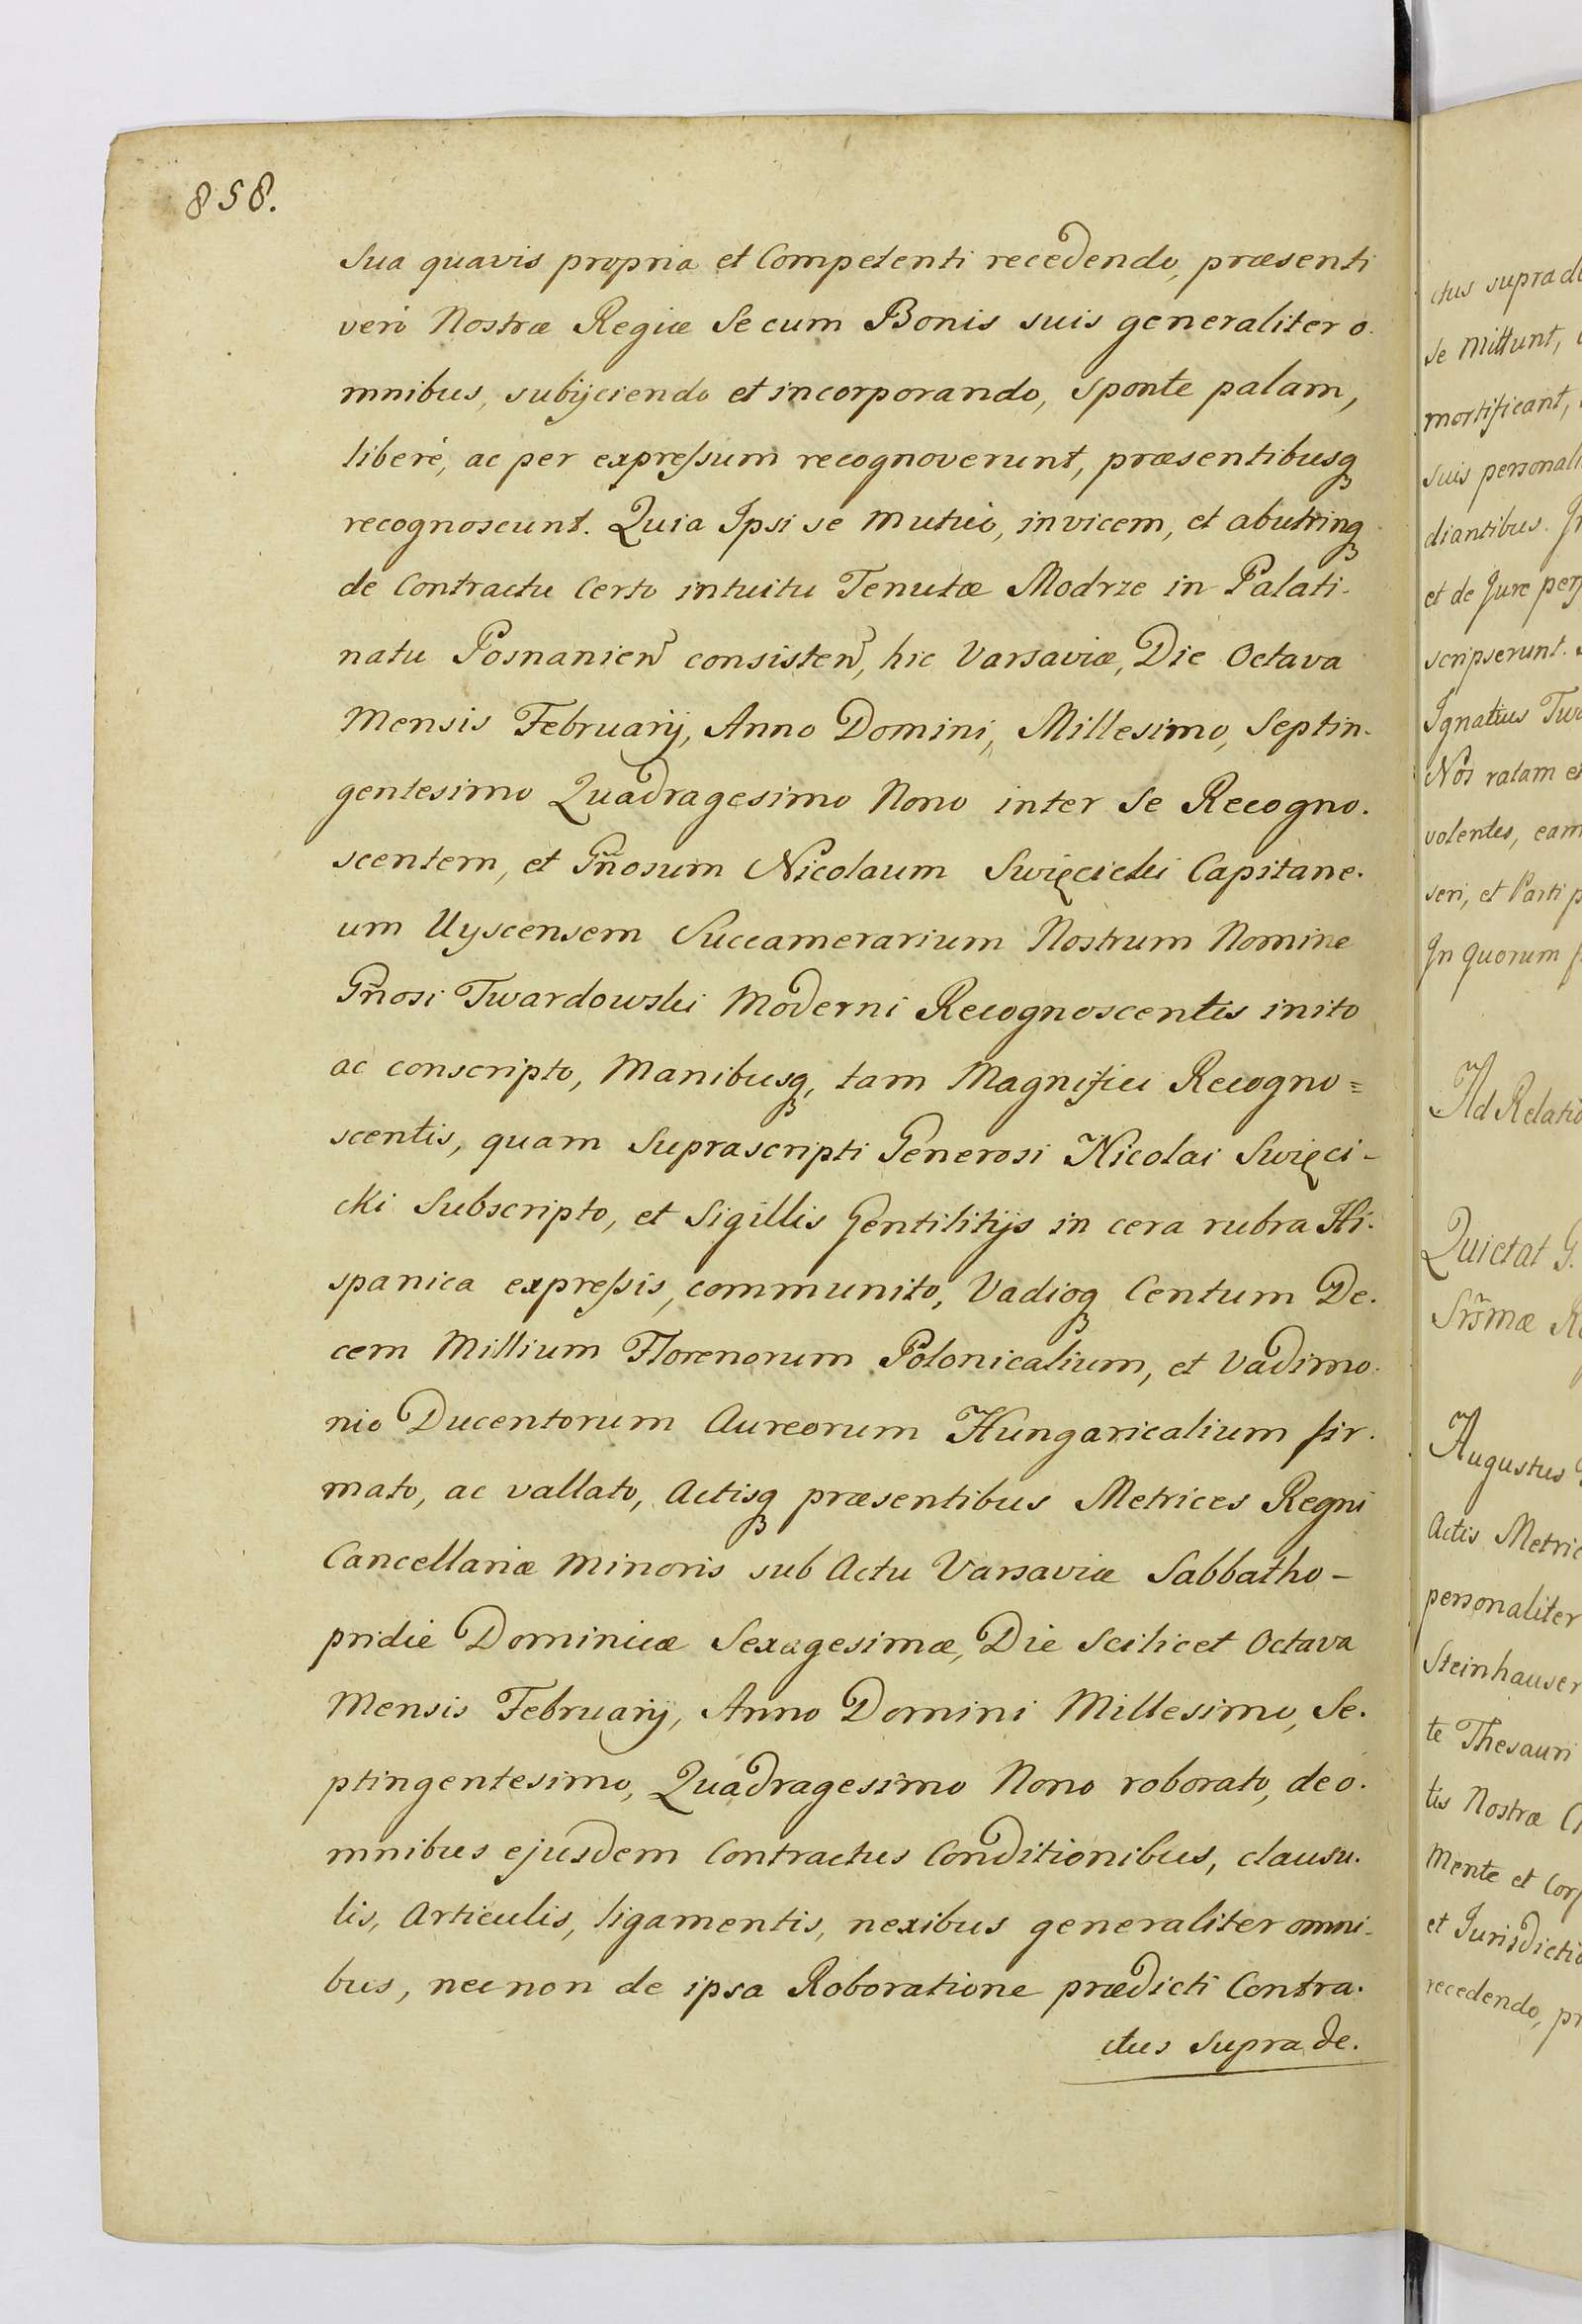 858.
sua quavis propria et Competenti recedendo, præsenti
verò Nostræ Regiæ Se cum Bonis suis generaliter o.
mnibus, subijciendo et incorporando, sponte palam,
liberè, ac per expressum recognoverunt, præsentibusq
recognoscunt. Quia Ipsi se mutuò, invicem, et abutrinq
de Contractu Certo intuitu Tenutæ Modrze in Palati-
natu Posnanien consisten, hic Varsaviæ, Die Octava
Mensis Februarij, Anno Domini, Millesimo, Septin-
gentesimo Quadragesimo Nono inter Se Recogno.
scentem, et Gnosum Nicolaum Swięcicki Capitane.
um Uyscensem Succamerarium Nostrum Nomine
Gnosi Twardowski Moderni Recognoscentis inito
ac conscripto, Manibusq, tam Magnifici Recogno=
scentis, quam Suprascripti Generosi Nicolai Swięci-
cki Subscripto, et Sigillis Gentilitijs in cera rubra Hi-
spanica expressis, communito, Vadioq Centum De.
cem Millium Florenorum Polonicalium, et Vadimo.
nio Ducentorum Aureorum Hungaricalium fir.
mato, ac vallato, Actisq præsentibus Metrices Regni
Cancellariæ Minoris sub Actu Varsaviæ Sabbatho-
pridie Dominicæ Sexagesimæ, Die Scilicet Octava
Mensis Februarij, Anno Domini Millesimo, Se.
ptingentesimo, Quadragesimo Nono roborato, de o.
mnibus ejusdem Contractus Conditionibus, clausu.
lis, Articulis, ligamentis, nexibus generaliter omni-
bus, nec non de ipsa Roboratione prædicti Contra.
ctus supra de.
ctus suprade
se mittunt,
mortificant,
suis personali
diantibus.
et de Jure
scripserunt.
Ignatius
Nos ratam et
volentes, eam
seri, et Parti
In quorum
Ad Relatio
Quietat G.
Srsmæ
Augustus
Actis Metric
personaliter
Steinhauser
te Thesauri
tis Nostræ
Mente et Corp
et Jurisdictio
recedendo, pr